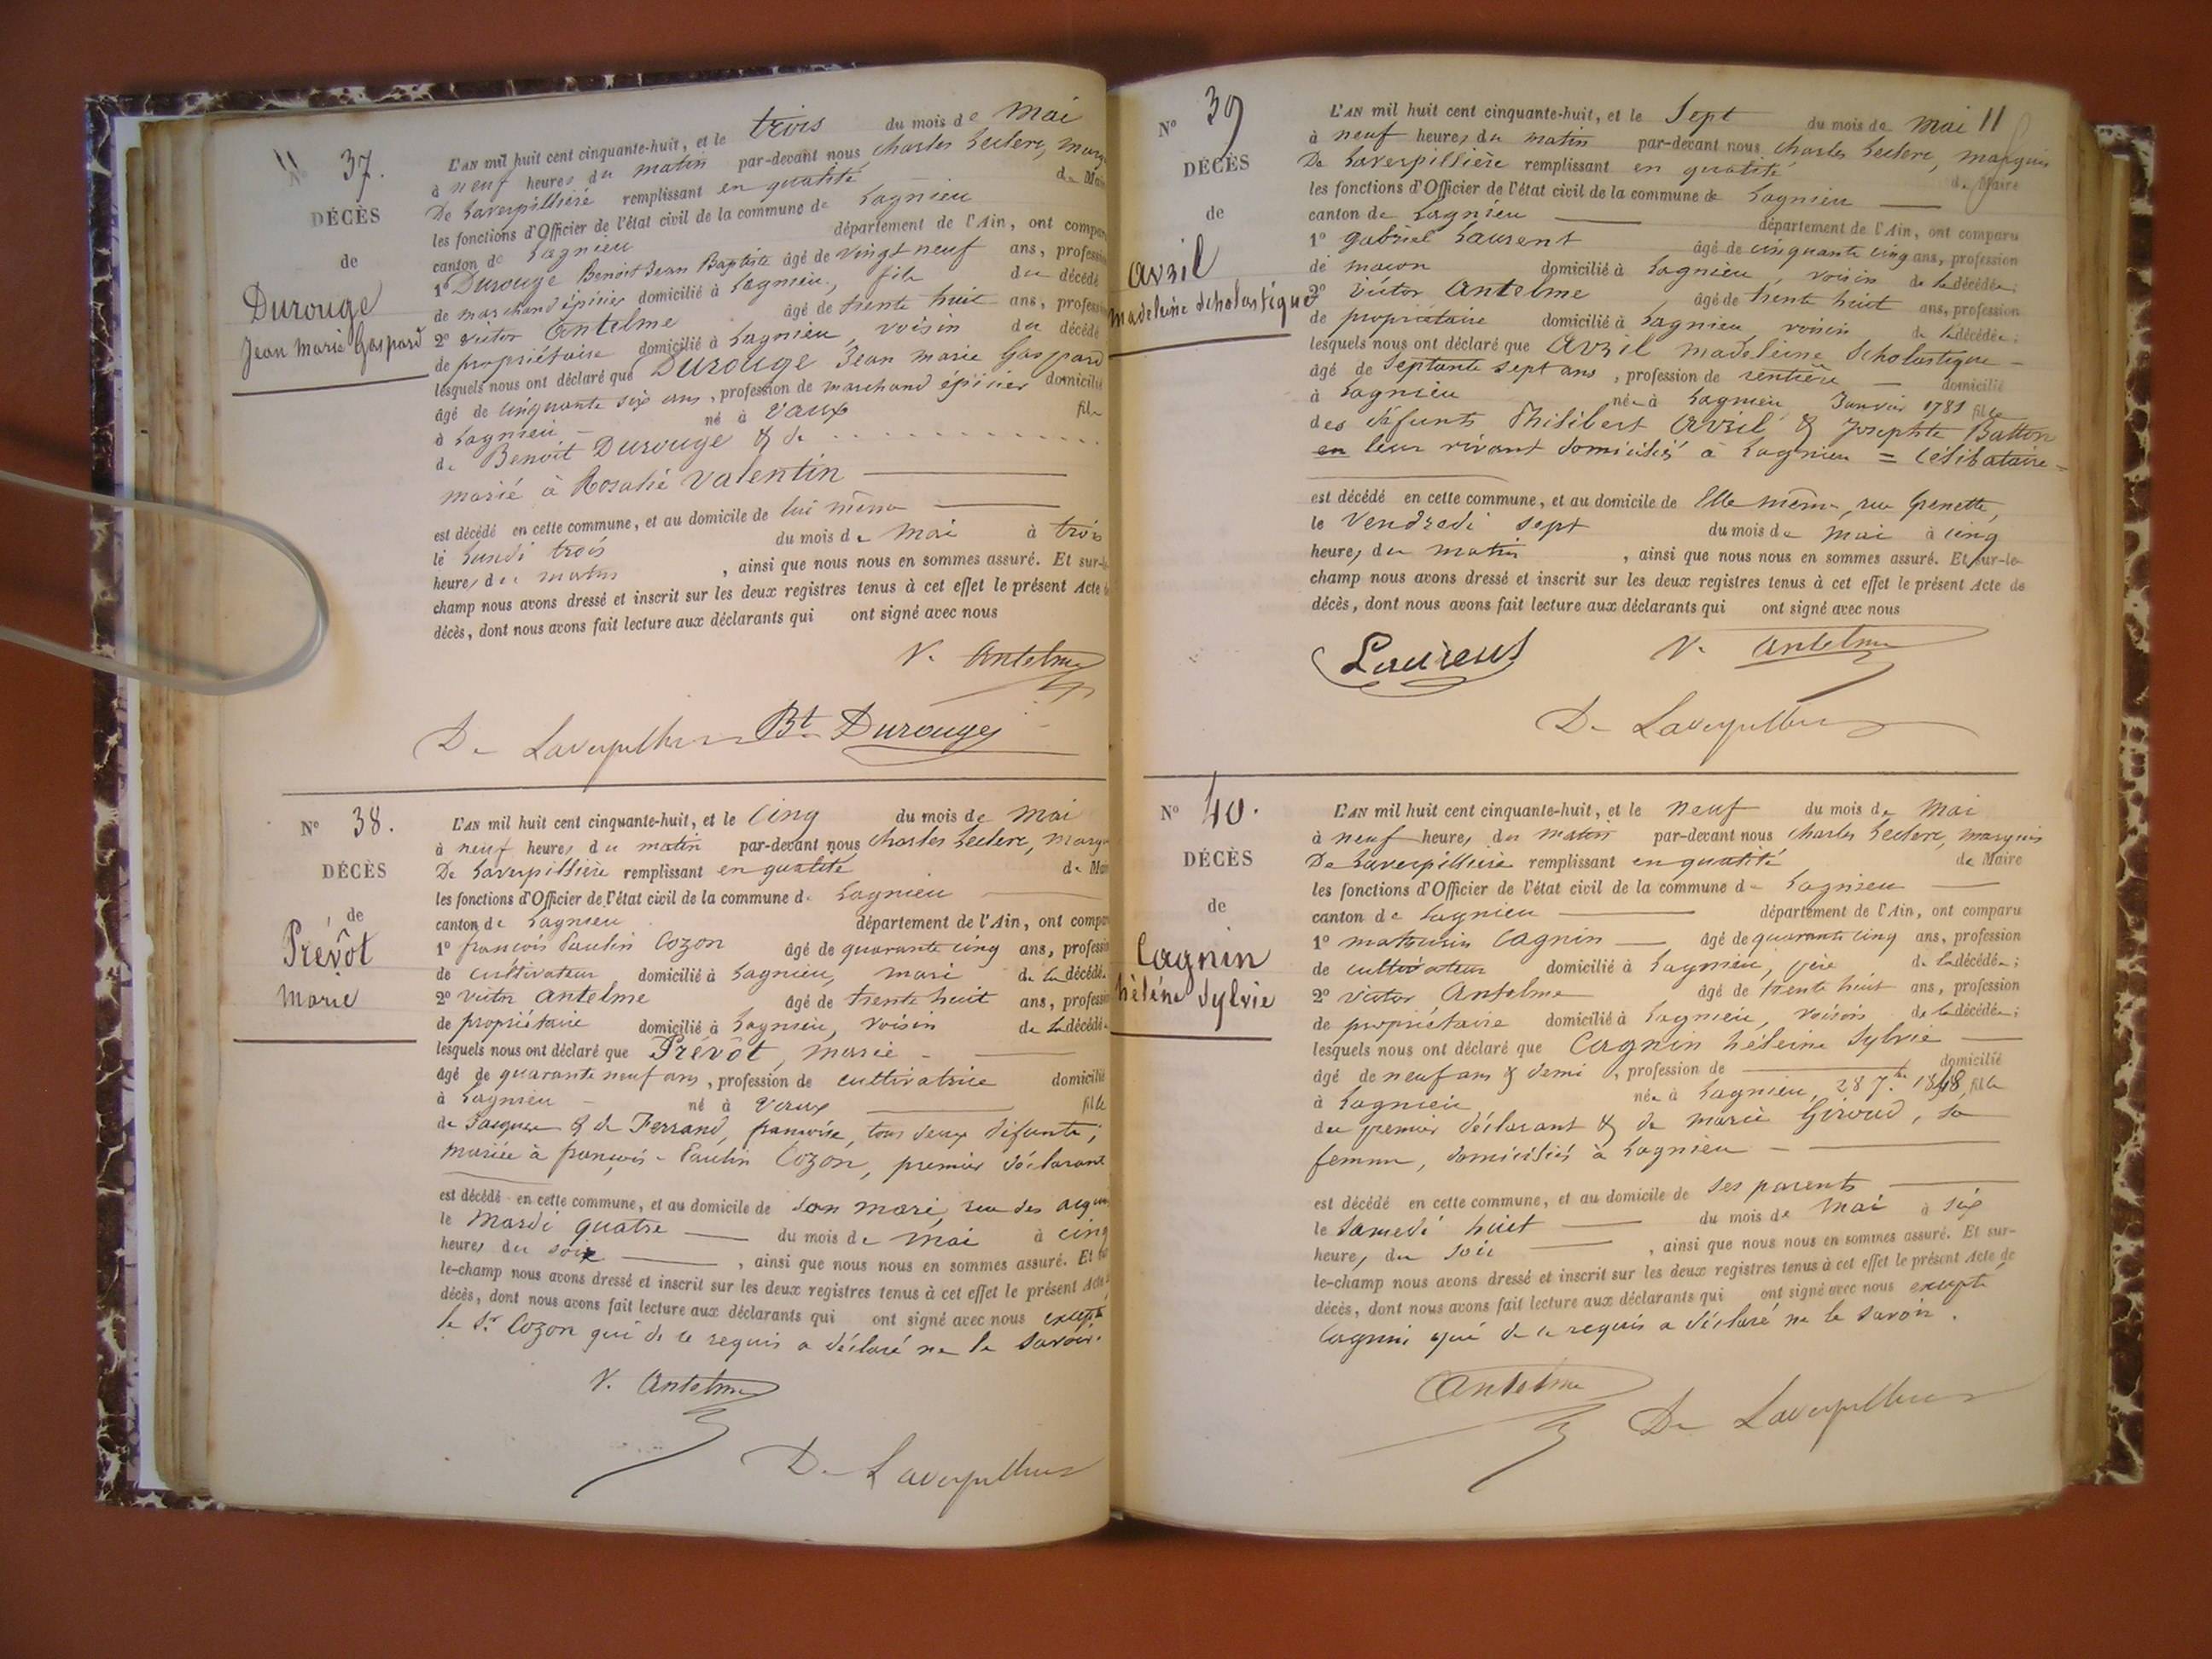 N° 37.
DÉCÈS
de
Durouge
Jean Marie Gaspard
L'AN mil huit cent cinquante-huit, et le trois du mois de Mai
à neuf heures du matin par-devant nous Charles Leclerc, marq
De Laverpillière remplissant en qualité de Mai
les fonctions d'Officier de l'état civil de la commune de Lagnieu
canton de Lagnieu département de l'Ain, ont compar
1° Durouge Benoit Jean Baptiste âgé de vingt neuf ans, professi
de marchand épicier domicilié à Lagnieu, fils du décédé
2° Victor Antelme âgé de trente huit ans, professi
de propriétaire domicilié à Lagnieu, voisin du décédé
lesquels nous ont déclaré que Durouge Jean Marie Gaspard
âgé de cinquante six ans, profession de marchand épicier domicilié
à Lagnieu – né à Vaux fils
de Benoit Durouge & de . . . . . . . . . . . . .
marié à Rosalie Valentin
est décédé en cette commune, et au domicile de lui même
le Lundi trois du mois de Mai à trois
heures du matin , ainsi que nous nous en sommes assuré. Et sur-l
champ nous avons dressé et inscrit sur les deux registres tenus à cet effet le présent Acte d
décès, dont nous avons fait lecture aux déclarants qui ont signé avec nous
V. Antelme
De Laverpillière Bt Durouge
N° 38.
DÉCÈS
de
Prévôt
Marie
L'AN mil huit cent cinquante-huit, et le Cinq du mois de Mai
à neuf heures du matin par-devant nous Charles Leclerc, marq
De Laverpillière remplissant en qualité de Mai
les fonctions d'Officier de l'état civil de la commune de Lagnieu
canton de Lagnieu département de l'Ain, ont compar
1° françois Paulin Cozon âgé de quarante cinq ans, professi
de cultivateur domicilié à Lagnieu, mari de la décédé.
2° Victor Antelme âgé de trente huit ans, professi
de propriétaire domicilié à Lagnieu, voisin de la décédée
lesquels nous ont déclaré que Prévôt, Marie –
âgé de quarante neuf ans, profession de cultivatrice domicilié
à Lagnieu – né à Vaux fille
de Jacques & de Ferrand, françoise, tous deux défunts;
mariée à françois-Paulin Cozon, premier déclarant
est décédé en cette commune, et au domicile de son mari, rue des
le Mardi quatre du mois de Mai à cinq
heures du soir , ainsi que nous nous en sommes assuré. Et
le-champ nous avons dressé et inscrit sur les deux registres tenus à cet effet le présent Acte
décès, dont nous avons fait lecture aux déclarants qui ont signé avec nous excepté
le Sr Cozon qui de ce requis a déclaré ne le savoir.
V. Antelme
De Laverpillière
11
N° 39
DÉCÈS
de
Avril
Madeleine Scholastique
L'AN mil huit cent cinquante-huit, et le Sept du mois de Mai
à neuf heures du matin par-devant nous Charles Leclerc, marquis
De Laverpillière remplissant en qualité de Maire
les fonctions d'Officier de l'état civil de la commune de Lagnieu
canton de Lagnieu département de l'Ain, ont comparu
1° Gabriel Laurent âgé de cinquante cinq ans, profession
de maçon domicilié à Lagnieu, voisin de la décédée;
2° Victor Antelme âgé de trente huit ans, profession
de propriétaire domicilié à Lagnieu, voisin de la décédée;
lesquels nous ont déclaré que Avril Madeleine Scholastique –
âgé de Septante sept ans, profession de rentière – domicilié
à Lagnieu née à Lagnieu, Janvier 1781 fille
des défunts Philibert Avril & Josephte Button
en leur vivant domiciliés à Lagnieu = Célibataire =
est décédé en cette commune, et au domicile de Elle même, rue Grenette,
le Vendredi sept du mois de Mai à cinq
heures du matin , ainsi que nous nous en sommes assuré. Et sur-le-
champ nous avons dressé et inscrit sur les deux registres tenus à cet effet le présent Acte de
décès, dont nous avons fait lecture aux déclarants qui ont signé avec nous
Laurent V. Antelme
De Laverpillière
N° 40.
DÉCÈS
de
Cagnin
hélène Sylvie
L'AN mil huit cent cinquante-huit, et le neuf du mois de Mai
à neuf heures du matin par-devant nous Charles Leclerc, marquis
De Laverpillière remplissant en qualité de Maire
les fonctions d'Officier de l'état civil de la commune de Lagnieu
canton de Lagnieu département de l'Ain, ont comparu
1° Mathurin Cagnin âgé de quarante cinq ans, profession
de cultivateur domicilié à Lagnieu, père de la décédée;
2° Victor Antelme âgé de trente huit ans, profession
de propriétaire domicilié à Lagnieu, voisin de la décédée;
lesquels nous ont déclaré que Cagnin héleine Sylvie
âgé de neuf ans & demi, profession de domicilié
à Lagnieu née à Lagnieu, 28 7bre 1848, fille
du premier déclarant & de Marie Giroud, sa
femme, domiciliés à Lagnieu –
est décédé en cette commune, et au domicile de ses parents
le Samedi huit du mois de Mai à six
heures du soir , ainsi que nous nous en sommes assuré. Et sur-
le-champ nous avons dressé et inscrit sur les deux registres tenus à cet effet le présent Acte de
décès, dont nous avons fait lecture aux déclarants qui ont signé avec nous excepté
Cagnin qui de ce requis a déclaré ne le savoir.
Antelme
De Laverpillière